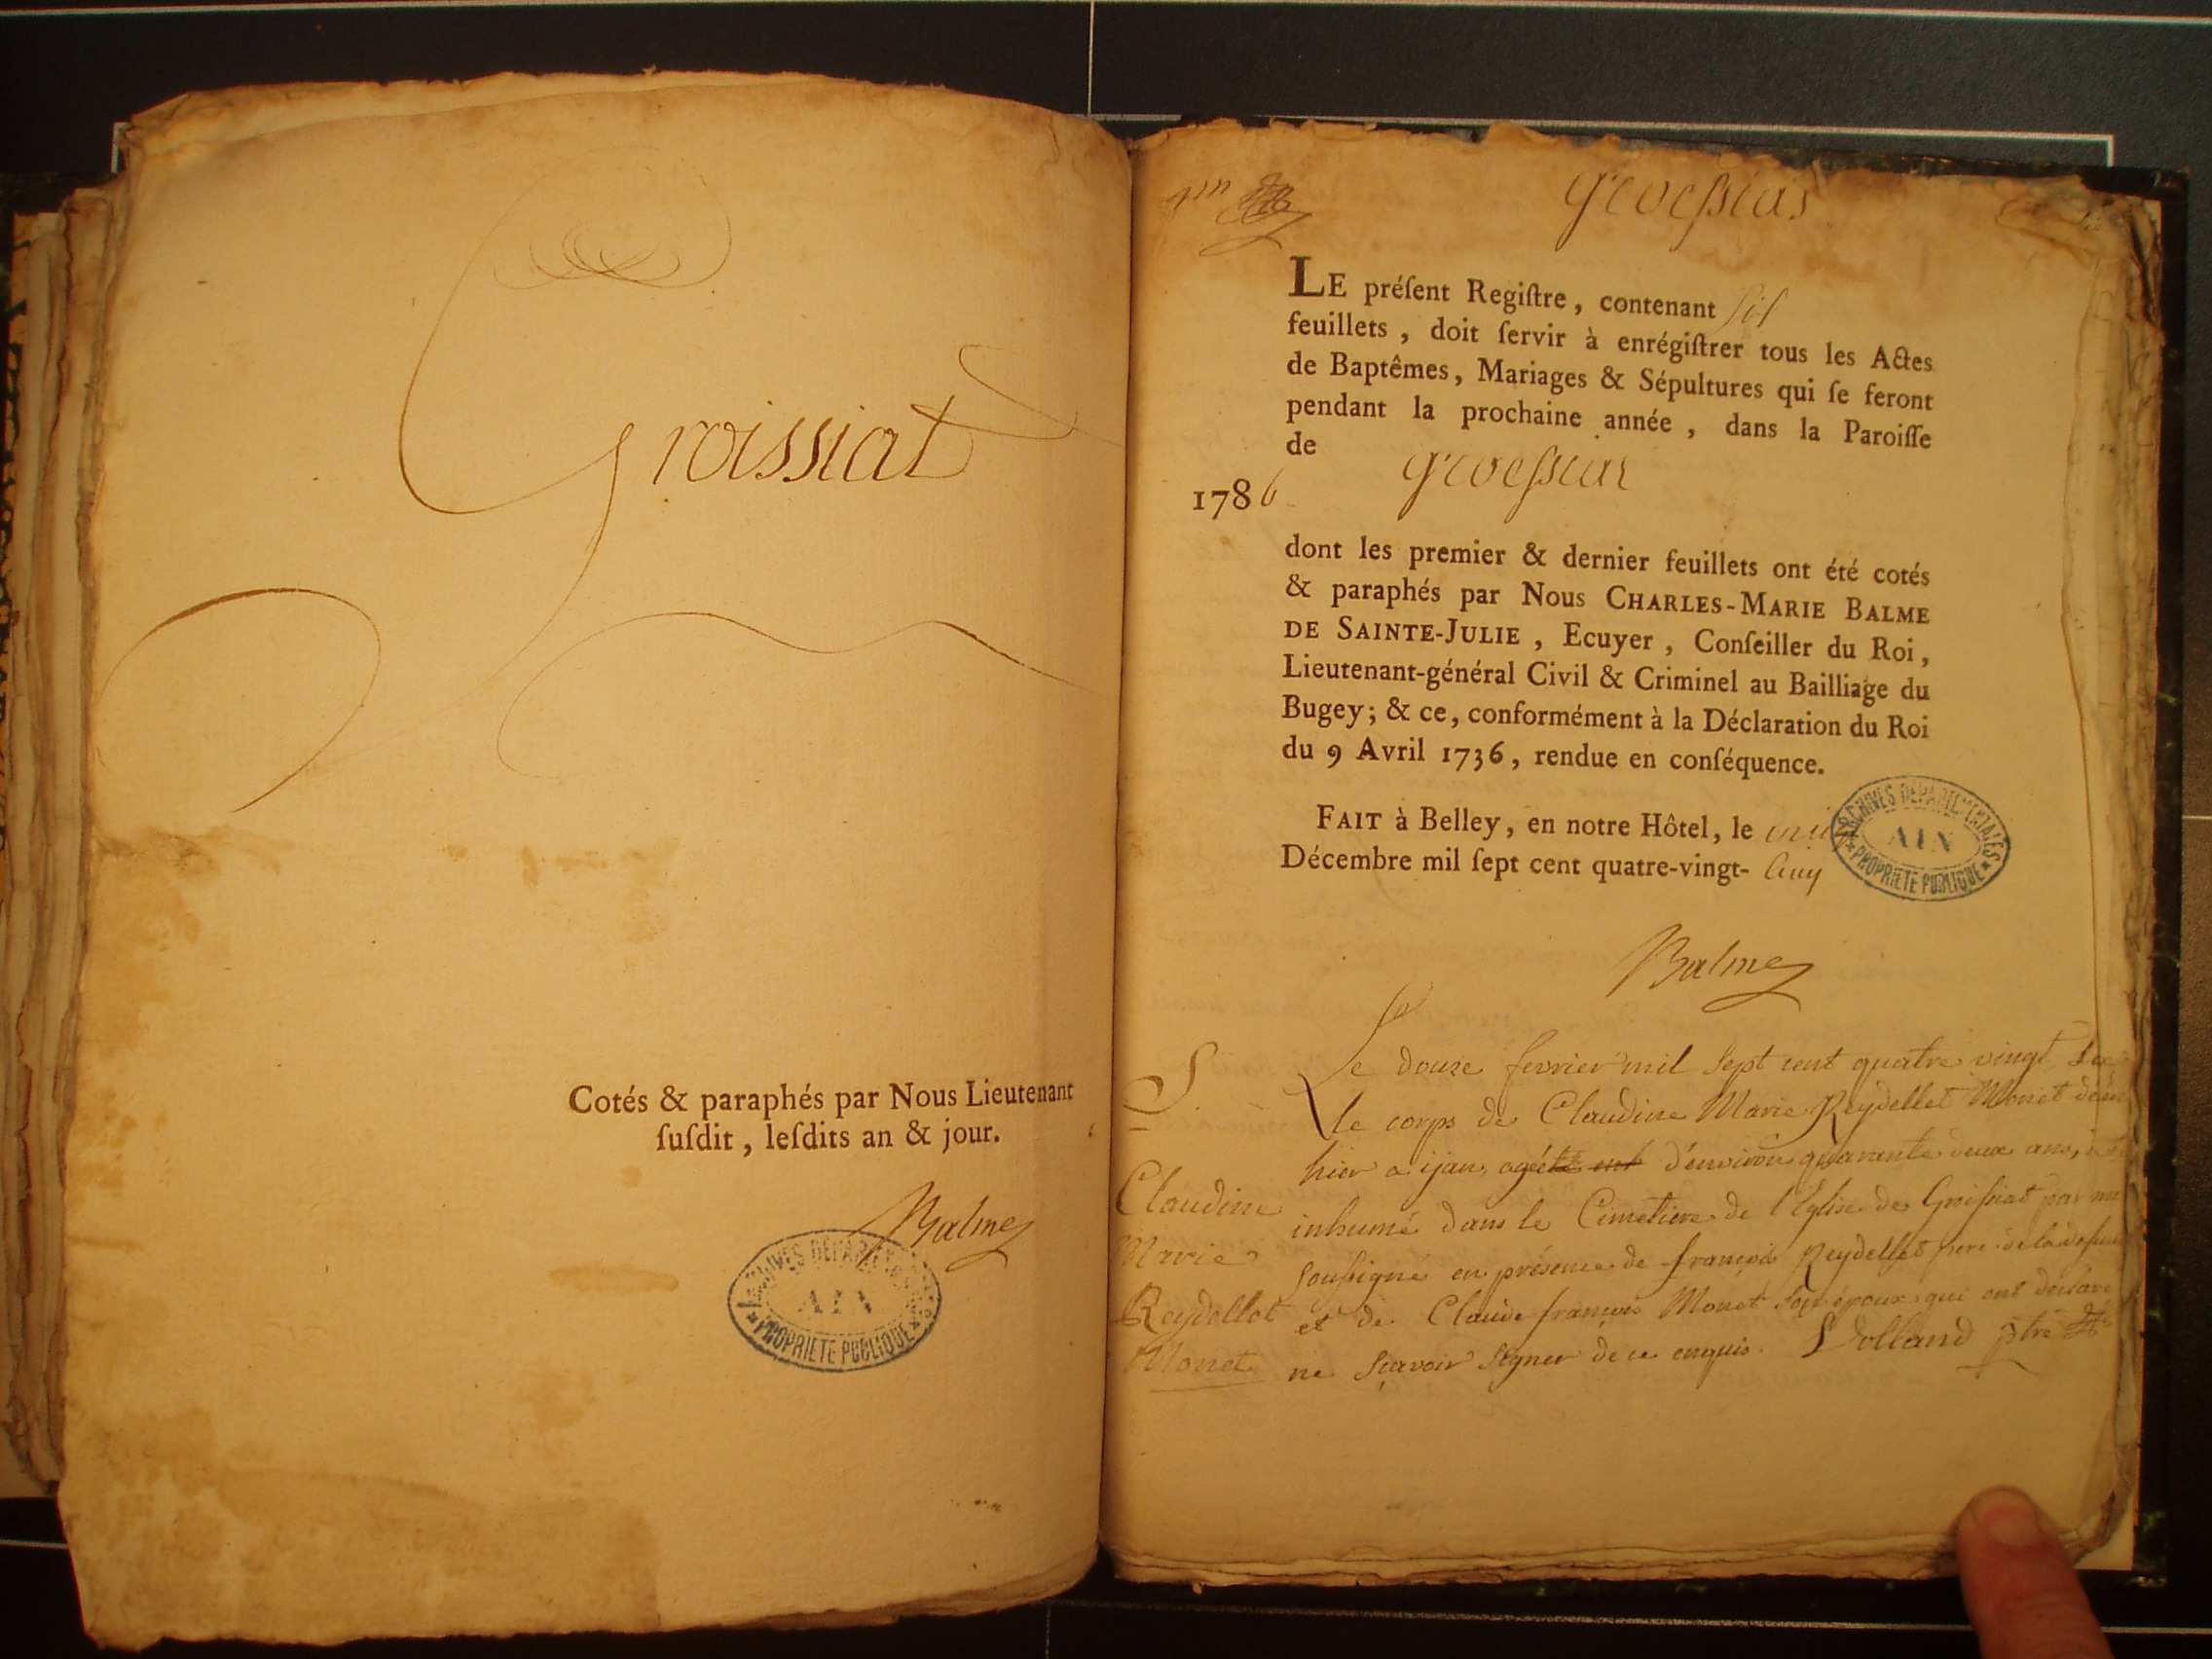 Groissiat
Cotés & paraphés par Nous Lieutenant
ſuſdit, leſdits an & jour.
Balme
ARCHIVES DÉPARTEMENTALES
AIN
PROPRIETE PUBLIQUE
Groeſsias
LE préſent Regiſtre, contenant six
feuillets, doit ſervir à enrégiſtrer tous les Actes
de Baptêmes, Mariages & Sépultures qui ſe feront
pendant la prochaine année, dans la Paroiſſe
de Groeſsias
1786
dont les premier & dernier feuillets ont été cotés
& paraphés par Nous CHARLES-MARIE BALME
DE SAINTE-JULIE, Ecuyer, Conſeiller du Roi,
Lieutenant-général Civil & Criminel au Bailliage du
Bugey; & ce, conformément à la Déclaration du Roi
du 9 Avril 1736, rendue en conſéquence.
FAIT à Belley, en notre Hôtel, le
Décembre mil ſept cent quatre-vingt- Cinq
ARCHIVES DEPARTEMENTALES
AIN
PROPRIETE PUBLIQUE
Balme
S.
Claudine
Marie
Reydellet
Monet
Le douze fevrier mil Sept cent quatre vingt Six
le corps de Claudine Marie Reydellet Monet
hier a ijan, agée d'environ quarante deux ans,
inhumé dans le Cimetiere de l'Eglise de Groiſsiat par
Souſsigné en présence de françois Reydellet frere de la
et de Claude françois Monet Son epoux qui ont declaré
ne Sçavoir Signer de ce enquis. Volland ptre